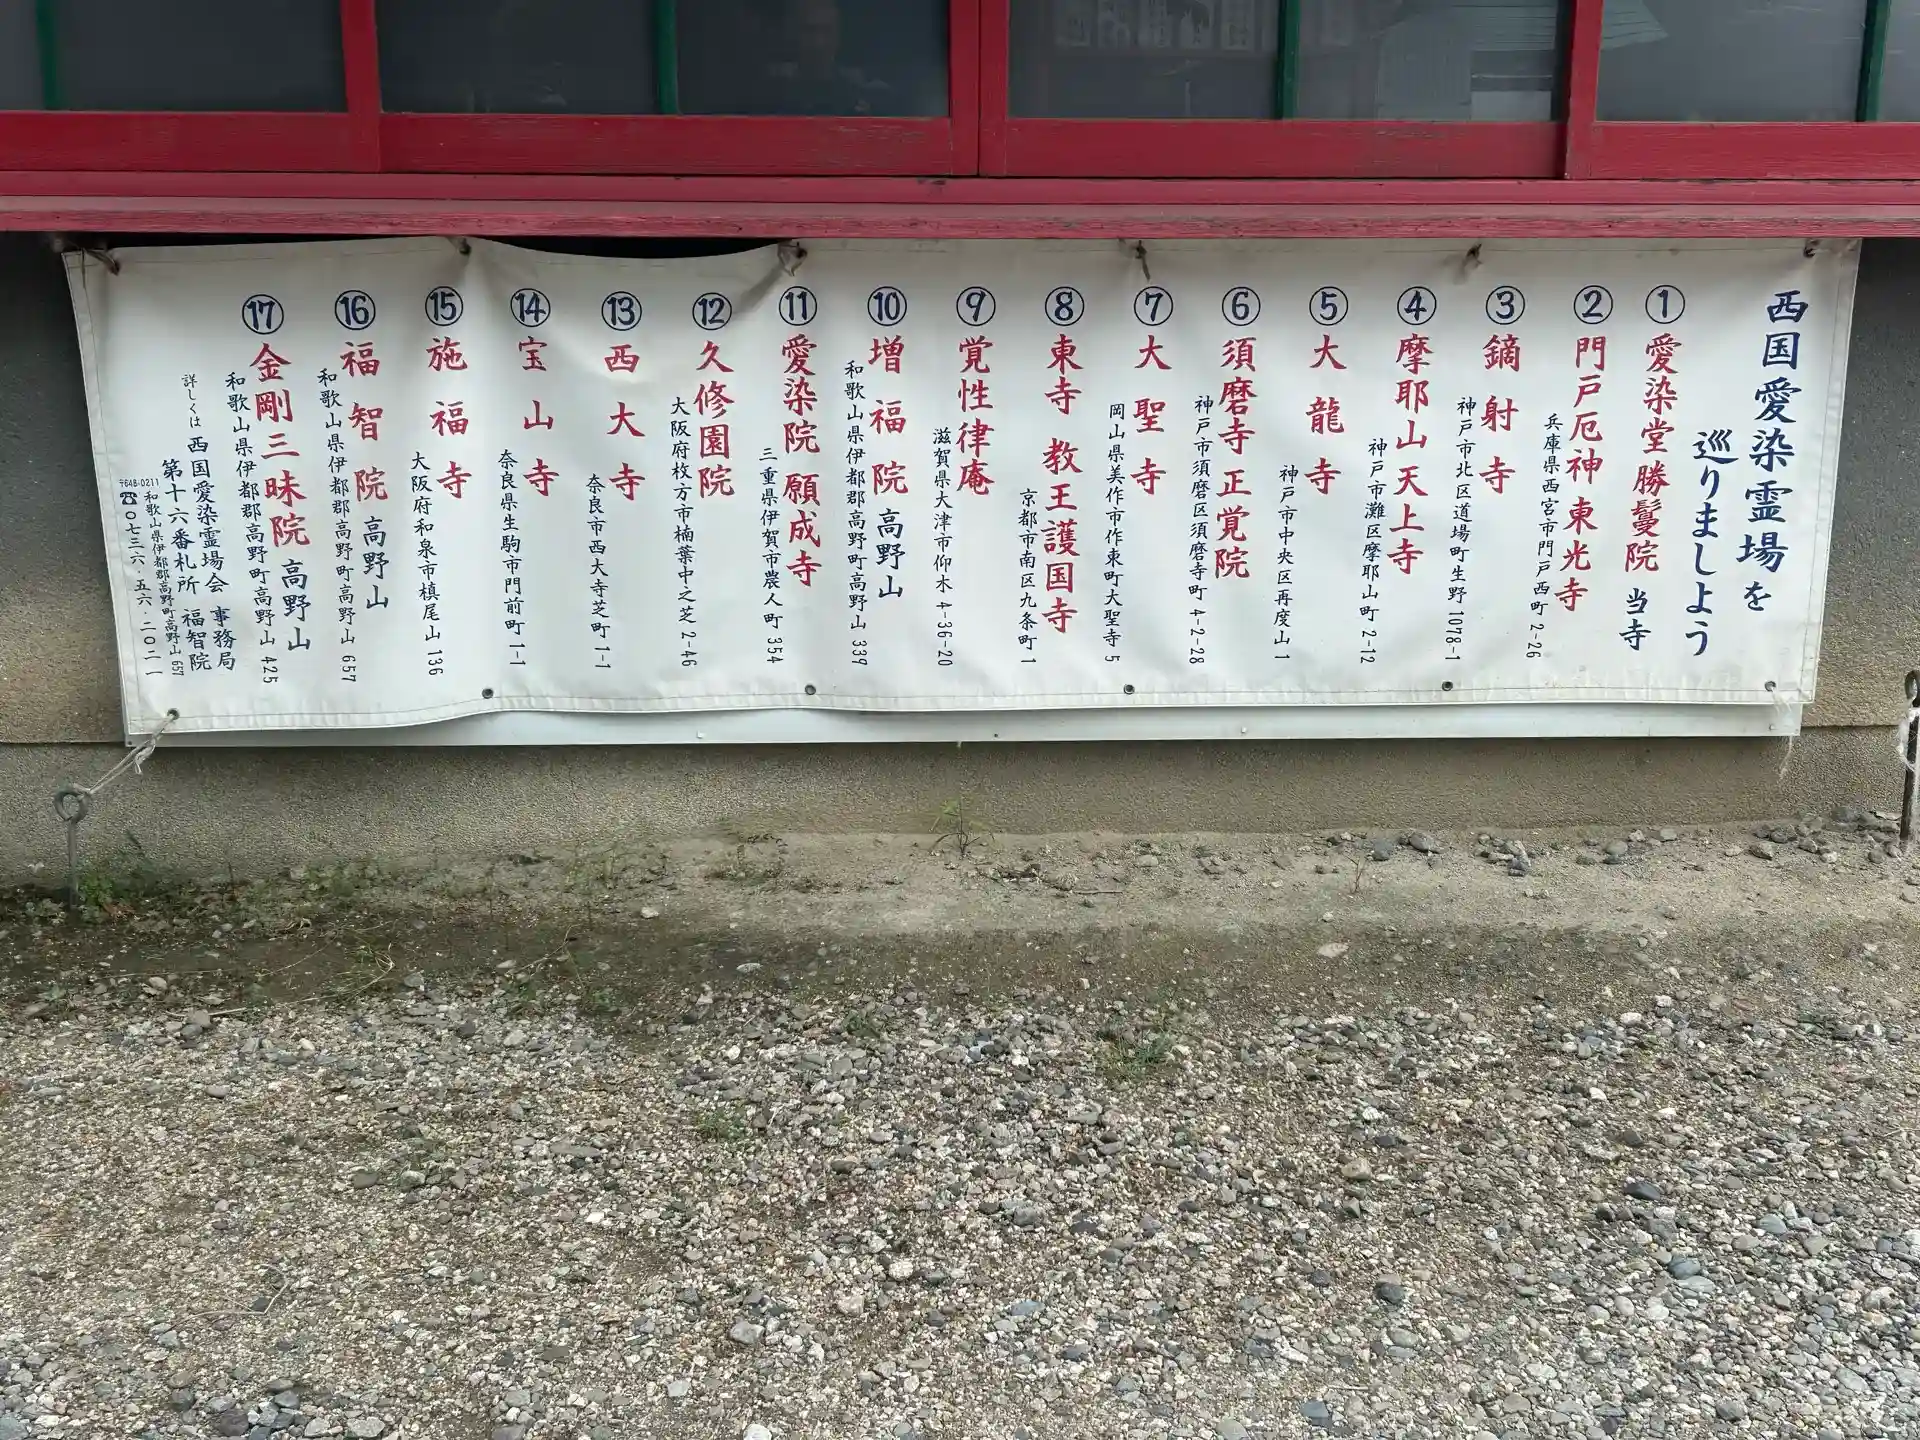 西国愛染霊場を
巡りましよう
①愛染堂 勝鬘院 当寺
②門戸厄神 東光寺
兵庫県西宮市門戸西町2-26
③鏑射寺
神戸市北区道場町生野1078-1
④摩耶山天上寺
神戸市灘区摩耶山町2-12
⑤大龍寺
神戸市中央区再度山1
⑥須磨寺 正覚院
神戸市須磨区須磨寺町4-2-28
⑦大聖寺
岡山県美作市作東町大聖寺5
⑧東寺 教王護国寺
京都市南区九条町1
⑨覚性律庵
滋賀県大津市仰木4-36-20
⑩増福院 高野山
和歌山県伊都郡高野町高野山339
⑪愛染院 願成寺
三重県伊賀市農人町354
⑫久修園院
大阪府枚方市楠葉中之芝2-46
⑬西大寺
奈良市西大寺芝町1-1
⑭宝山寺
奈良県生駒市門前町1-1
⑮施福寺
大阪府和泉市槙尾山136
⑯福智院 高野山
和歌山県伊都郡高野町高野山657
⑰金剛三昧院 高野山
和歌山県伊都郡高野町高野山425
詳しくは 西国愛染霊場会 事務局
第十六番札所 福智院
〒648-0211 和歌山県伊都郡高野町高野山657
☎〇七三六・五六・二〇二一